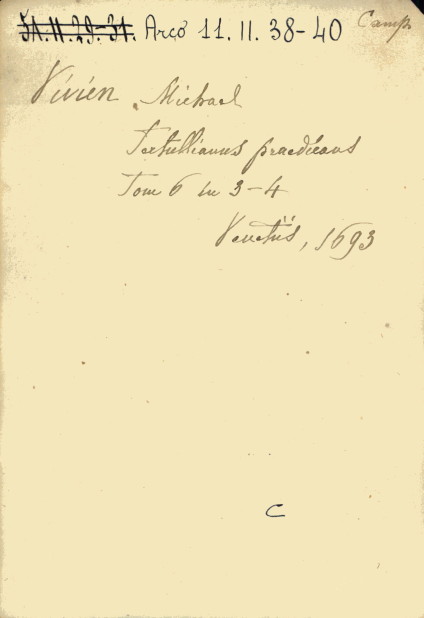 51.11.29-31. Arco 11.11.38-40 Camp.
Vivien Michael
Tertullianus praedicans
Tom 6 in 3-4
Venetiis, 1693
C